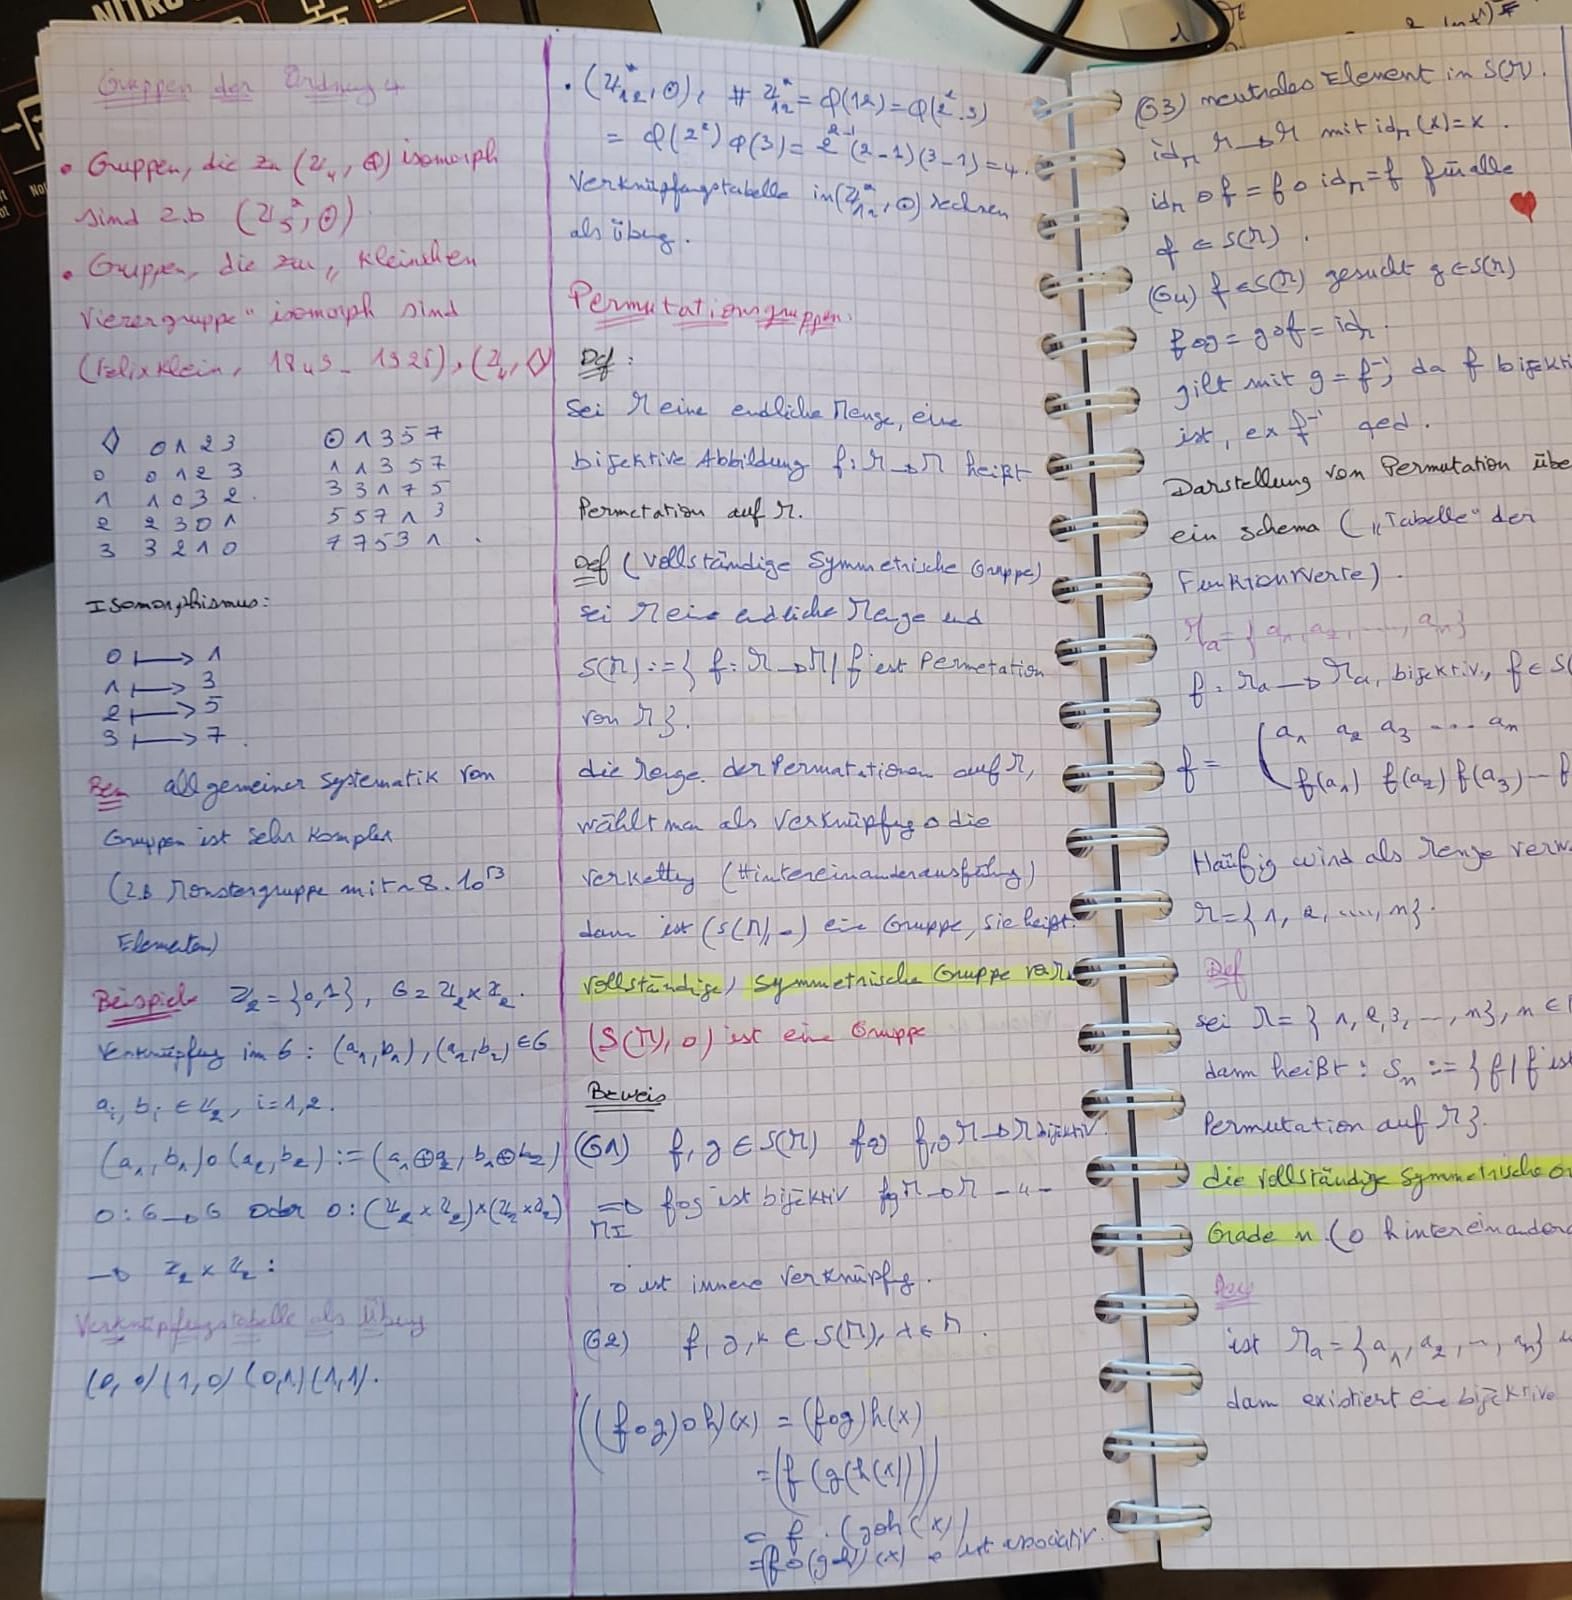 NITRO
Gruppen der Ordnung 4
• Gruppen, die zu (ℤ₄, ⊕) isomorph
sind z.b (ℤ₅*, ⊙)
• Gruppen, die zur „Kleinschen
Vierergruppe" isomorph sind
(Felix Klein, 1849 - 1925), (ℤ₄, ◊)
◊ 0 1 2 3
0 0 1 2 3
1 1 0 3 2
2 2 3 0 1
3 3 2 1 0
⊙ 1 3 5 7
1 1 3 5 7
3 3 1 7 5
5 5 7 1 3
7 7 5 3 1 .
Isomorphismus:
0 ↦ 1
1 ↦ 3
2 ↦ 5
3 ↦ 7 .
Bem allgemeiner Systematik von
Gruppen ist sehr komplex
(z.B Monstergruppe mit ~ 8 . 10⁵³
Elementen)
Beispiel ℤ₂ = {0,1}, G = ℤ₂ × ℤ₂.
Verknüpfug im G : (a₁,b₁), (a₂,b₂) ∈ G
aᵢ, bᵢ ∈ ℤ₂, i=1,2.
(a₁,b₁) o (a₂,b₂) := (a₁⊕a₂, b₁⊕b₂)
o : G → G oder o : (ℤ₂ × ℤ₂) × (ℤ₂ × ℤ₂)
→ ℤ₂ × ℤ₂ :
Verknüpfungstabelle als Übung
(0,0) (1,0) (0,1) (1,1).
• (ℤ₁₂*, ⊙), # ℤ₁₂* = φ(12) = φ(2².3)
= φ(2²) φ(3) = 2²⁻¹ (2-1) (3-1) = 4.
Verknüpfungstabelle in (ℤ₁₂*, ⊙) rechnen
als Übung.
Permutationsgruppen.
Def :
Sei M eine endliche Menge, eine
bijektive Abbildung f: M → M heißt
Permetation auf M.
Def (Vollständige Symmetrische Gruppe)
sei M eine endliche Menge und
S(M) := { f: M → M | f ist Permetation
von M }.
die Menge der Permutationen auf M,
wählt man als Verknüpfug o die
Verkettug (Hintereinanderausführug)
dann ist (S(M), o) eine Gruppe, sie heißt
vollständige, Symmetrische Gruppe von M
(S(M), o) ist eine Gruppe
Beweis
(G1) f, g ∈ S(M) fog f, g M → M bijektiv.
⇒ fog ist bijektiv fg M → M - " -
MI
o ist innere Verknüpfg.
(G2) f, g, h ∈ S(M), x ∈ M .
((f o g) o h)(x) = (f o g) h(x)
= (f (g(h(x))))
= f . (goh (x)
= (f o (g o h)) (x) o ist assoziativ.
(G3) neutrales Element in S(M).
id_M M → M mit id_M (x) = x .
id_M o f = f o id_M = f für alle
f ∈ S(M) .
(G4) f ∈ S(M) gesucht g ∈ S(M)
f o g = g o f = id_M .
gilt mit g = f⁻¹, da f bijekti
ist, ex f⁻¹ qed .
Darstellung von Permutation übe
ein schema („Tabelle" der
Funktionwerte) .
M_a = { a₁, a₂, ...., aₙ }
f : M_a → M_a, bijektiv, f ∈ S(
f = ( a₁ a₂ a₃ ---- aₙ
f(a₁) f(a₂) f(a₃) -- f
Häufig wird als Menge verw
M = { 1, 2, ...., n }.
Def
sei M = { 1, 2, 3, --, n }, n ∈
dann heißt : Sₙ := { f | f ist
Permutation auf M }.
die vollständige Symmetrische G
Grade n . (o hintereinander
ist M_a = { a₁, a₂, --, aₙ }
dann existiert eine bijektive